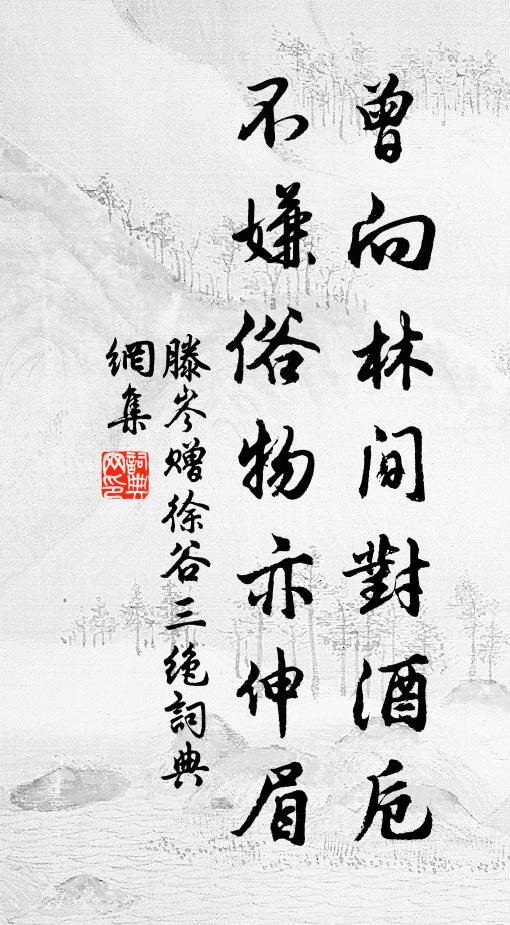 曾向林間對酒卮
不嫌俗物亦伸眉
滕岑赠徐谷三绝詞典
網集
詞典網印